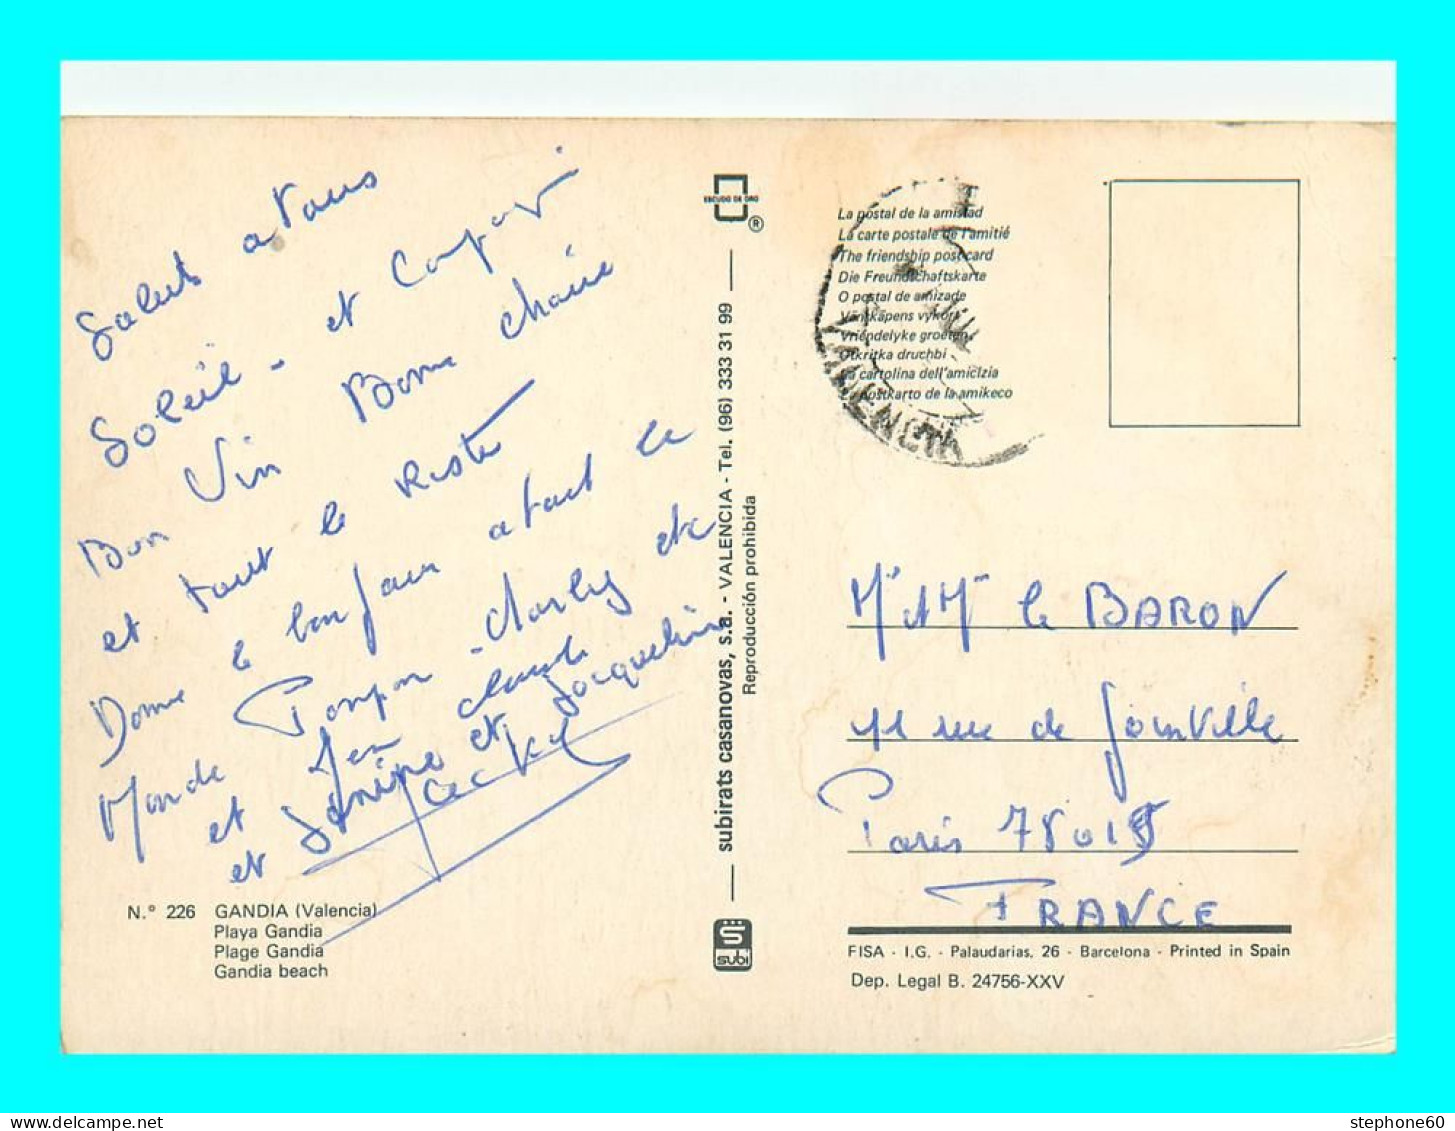 Salut a tous
Soleil - et
Bon Vin Bonne chaire
et tout le reste
Donne le bonjour a tout le
Monde Pompon - Charley etc
et Jean Claude
et Janine et Jacqueline
N.° 226 GANDIA (Valencia)
Playa Gandia
Plage Gandia
Gandia beach
ESCUDO DE ORO
®
subirats casanovas, s.a. - VALENCIA - Tel. (96) 333 31 99
Reproducción prohibida
subi
La postal de la amistad
La carte postale de l'amitié
The friendship post-card
Die Freundschaftskarte
O postal de amizade
Vänskapens vykort
Vriendelyke groeten
Otkritka druchbi
La cartolina dell'amicizia
La postkarto de la amikeco
VALENCIA
Mr & Mme le BARON
11 rue de Joinville
Paris 75019
FRANCE
FISA - I.G. - Palaudarias, 26 - Barcelona - Printed in Spain
Dep. Legal B. 24756-XXV
stephone60